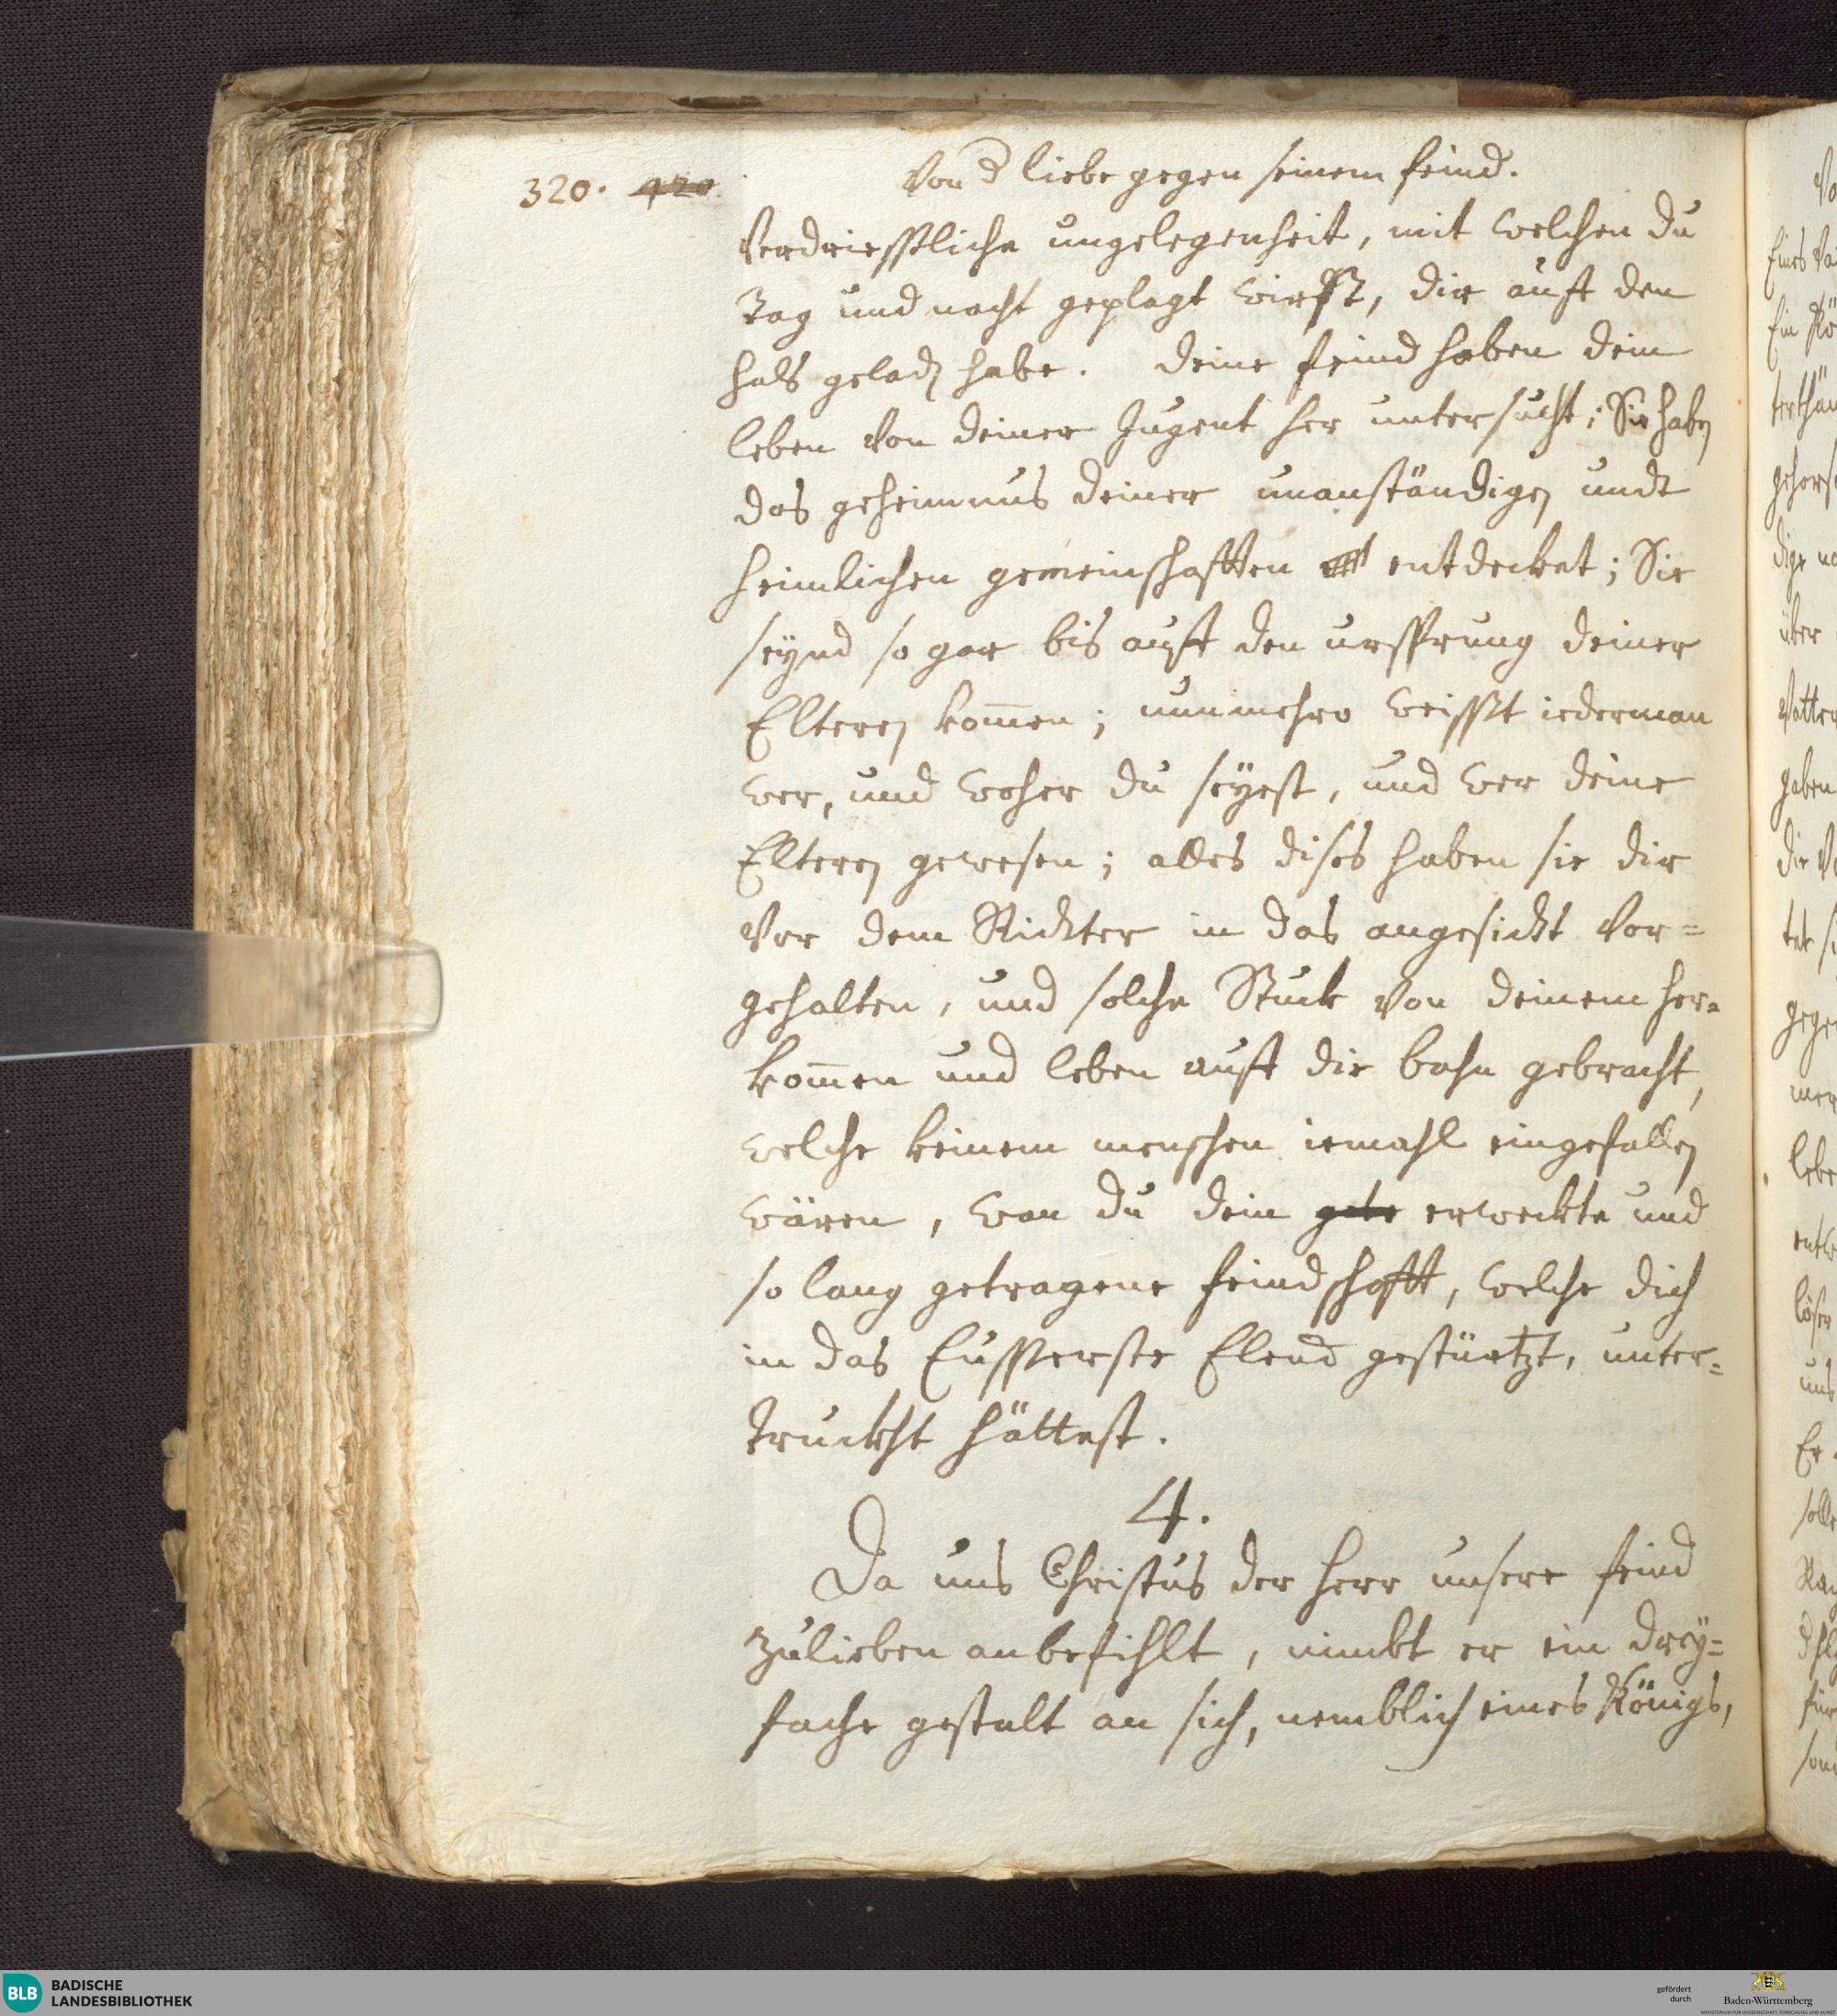 320. 420.
Von d liebe gegen seinem feind.
Verdriessliche ungelegenheit, mit welchen du
Tag und nacht geplagt wirst, dir auff den
hals geladen habe. Deine feind haben dein
leben von deiner Jugent her untersucht; Sie haben
das geheimnus deiner unanständigen undt
heimlichen gemeinschafften entdecket; Sie
seynd so gar bis auff den ursprung deiner
Elteren kom̄en; nunmehro weisst iederman
wer, und woher du seyest, und wer deine
Elteren gewesen; alles dises haben sie dir
Vor dem Richter in das angesicht vor=
gehalten, und solche Stuck von deinem her=
kom̄en und leben auff die bahn gebracht,
welche keinem menschen iemahl eingefallen
wären, wan du dein gete erweckte und
so lang getragene feindschafft, welche dich
in das Eusserste Elend gestürtzt, unter=
truckht hättest.
4.
Da uns Christus der Herr unsere feind
zulieben anbefihlt, nimbt er ein drey=
fache gestalt an sich, nemblich eines Königs,
Eines Va
Ein Kö
terthän
gehors
dige
über
Vatter
gaben
die Vo
gege
lebe
löser
und
Er
solle
für
BLB
BADISCHE
LANDESBIBLIOTHEK
gefördert
durch
Baden-Württemberg
MINISTERIUM FÜR WISSENSCHAFT, FORSCHUNG UND KUNST